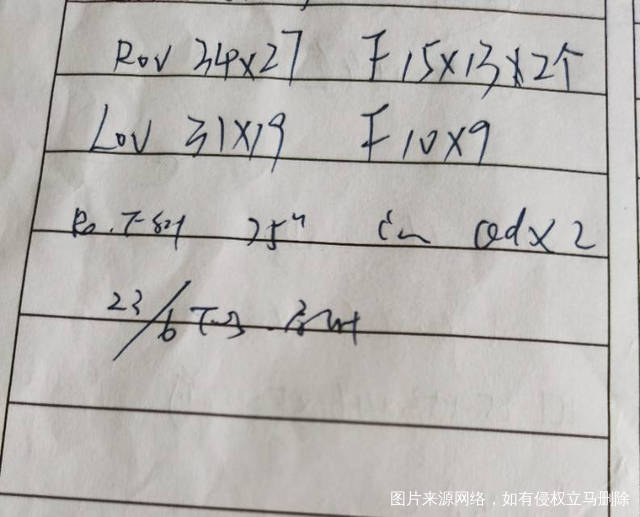 Rov 34x27 F 15x13x2个
Lov 31x19 F 10x9
75u im qd x 2
23/6
图片来源网络，如有侵权立马删除